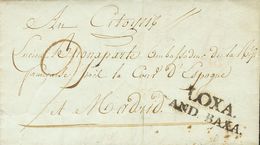 Au Citoyen
Lucien Bonaparte ambassadeur de la Rép
française près la Cour d'Espagne
A Madrid
LOXA.
AND. BAXA.